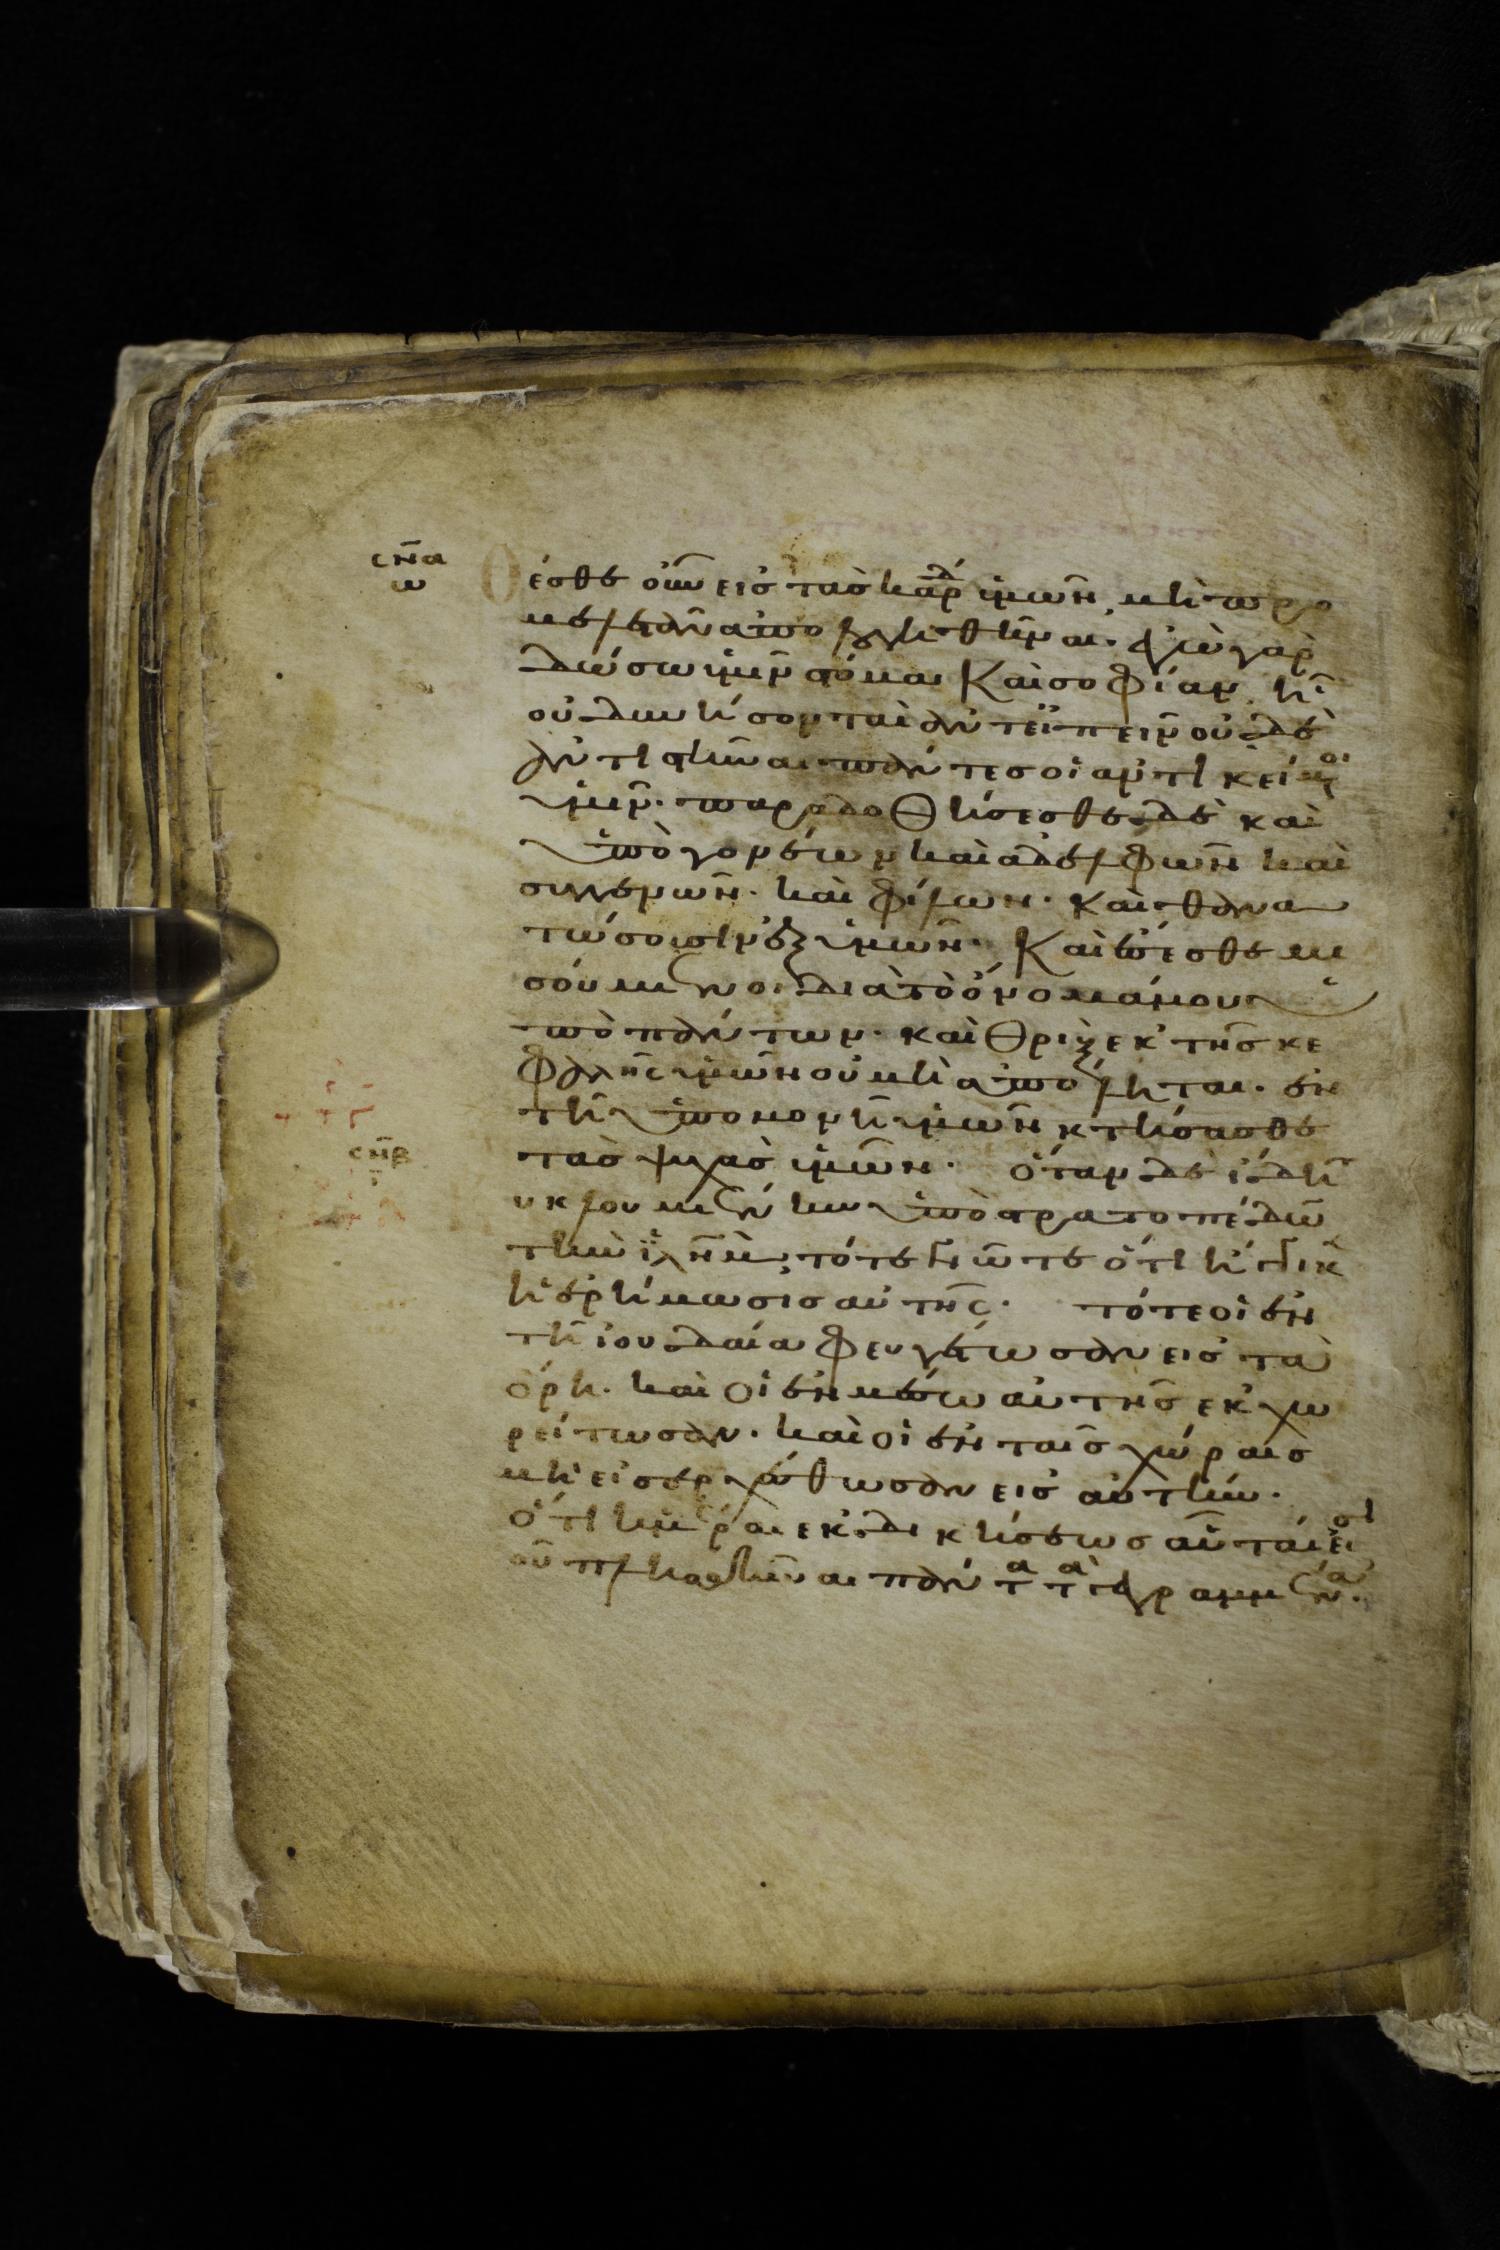 ς̅ν̅α̅
ω
Θέσθε οὖν εἰς τὰς καρδ ὑμῶν, μὴ προ
μελετᾶν ἀπολογηθῆναι· ἐγὼ γὰρ
δώσω ὑμῖν στόμα καὶ σοφίαν, ἧ
οὐ δυνήσονται ἀντειπεῖν οὐδὲ
ἀντιστῆναι πάντες οἱ ἀντικείμοι
ὑμῖν· παραδοθήσεσθε δὲ καὶ
ὑπὸ γονέων καὶ ἀδελφῶν καὶ
συγγενῶν· καὶ φίλων· καὶ θανα
τώσουσιν ἐξ ὑμῶν· Καὶ ἔσεσθε μι
σούμενοι διὰ τὸ ὄνομά μου ὑ
πὸ πάντων· καὶ θρὶξ ἐκ τῆς κε
φαλῆς ὑμῶν οὐ μὴ ἀπόληται· ἐν
τῆ ὑπομονῆ ὑμῶν κτήσασθε
ς̅ν̅β̅
τὰς ψυχὰς ὑμῶν· Ὅταν δὲ ἴδητ
υκλουμένην ὑπὸ στρατοπέδων
τὴν ἰλῆμ, τότε γνῶτε ὅτι ἤγγικ
ἡ ἐρήμωσις αὐτῆς· τότε οἱ ἐν
τῆ ἰουδαία φευγέτωσαν εἰς τὰ
ὄρη· καὶ οἱ ἐν μέσω αὐτῆς ἐκχω
ρείτωσαν· καὶ οἱ ἐν ταῖς χώραις
μὴ εἰσερχέσθωσαν εἰς αὐτήν·
Ὅτι ἡμέραι ἐκδικήσεως αὗταί εἰσι
οῦ πλησθῆναι πάντα τὰ γεγραμμένα·